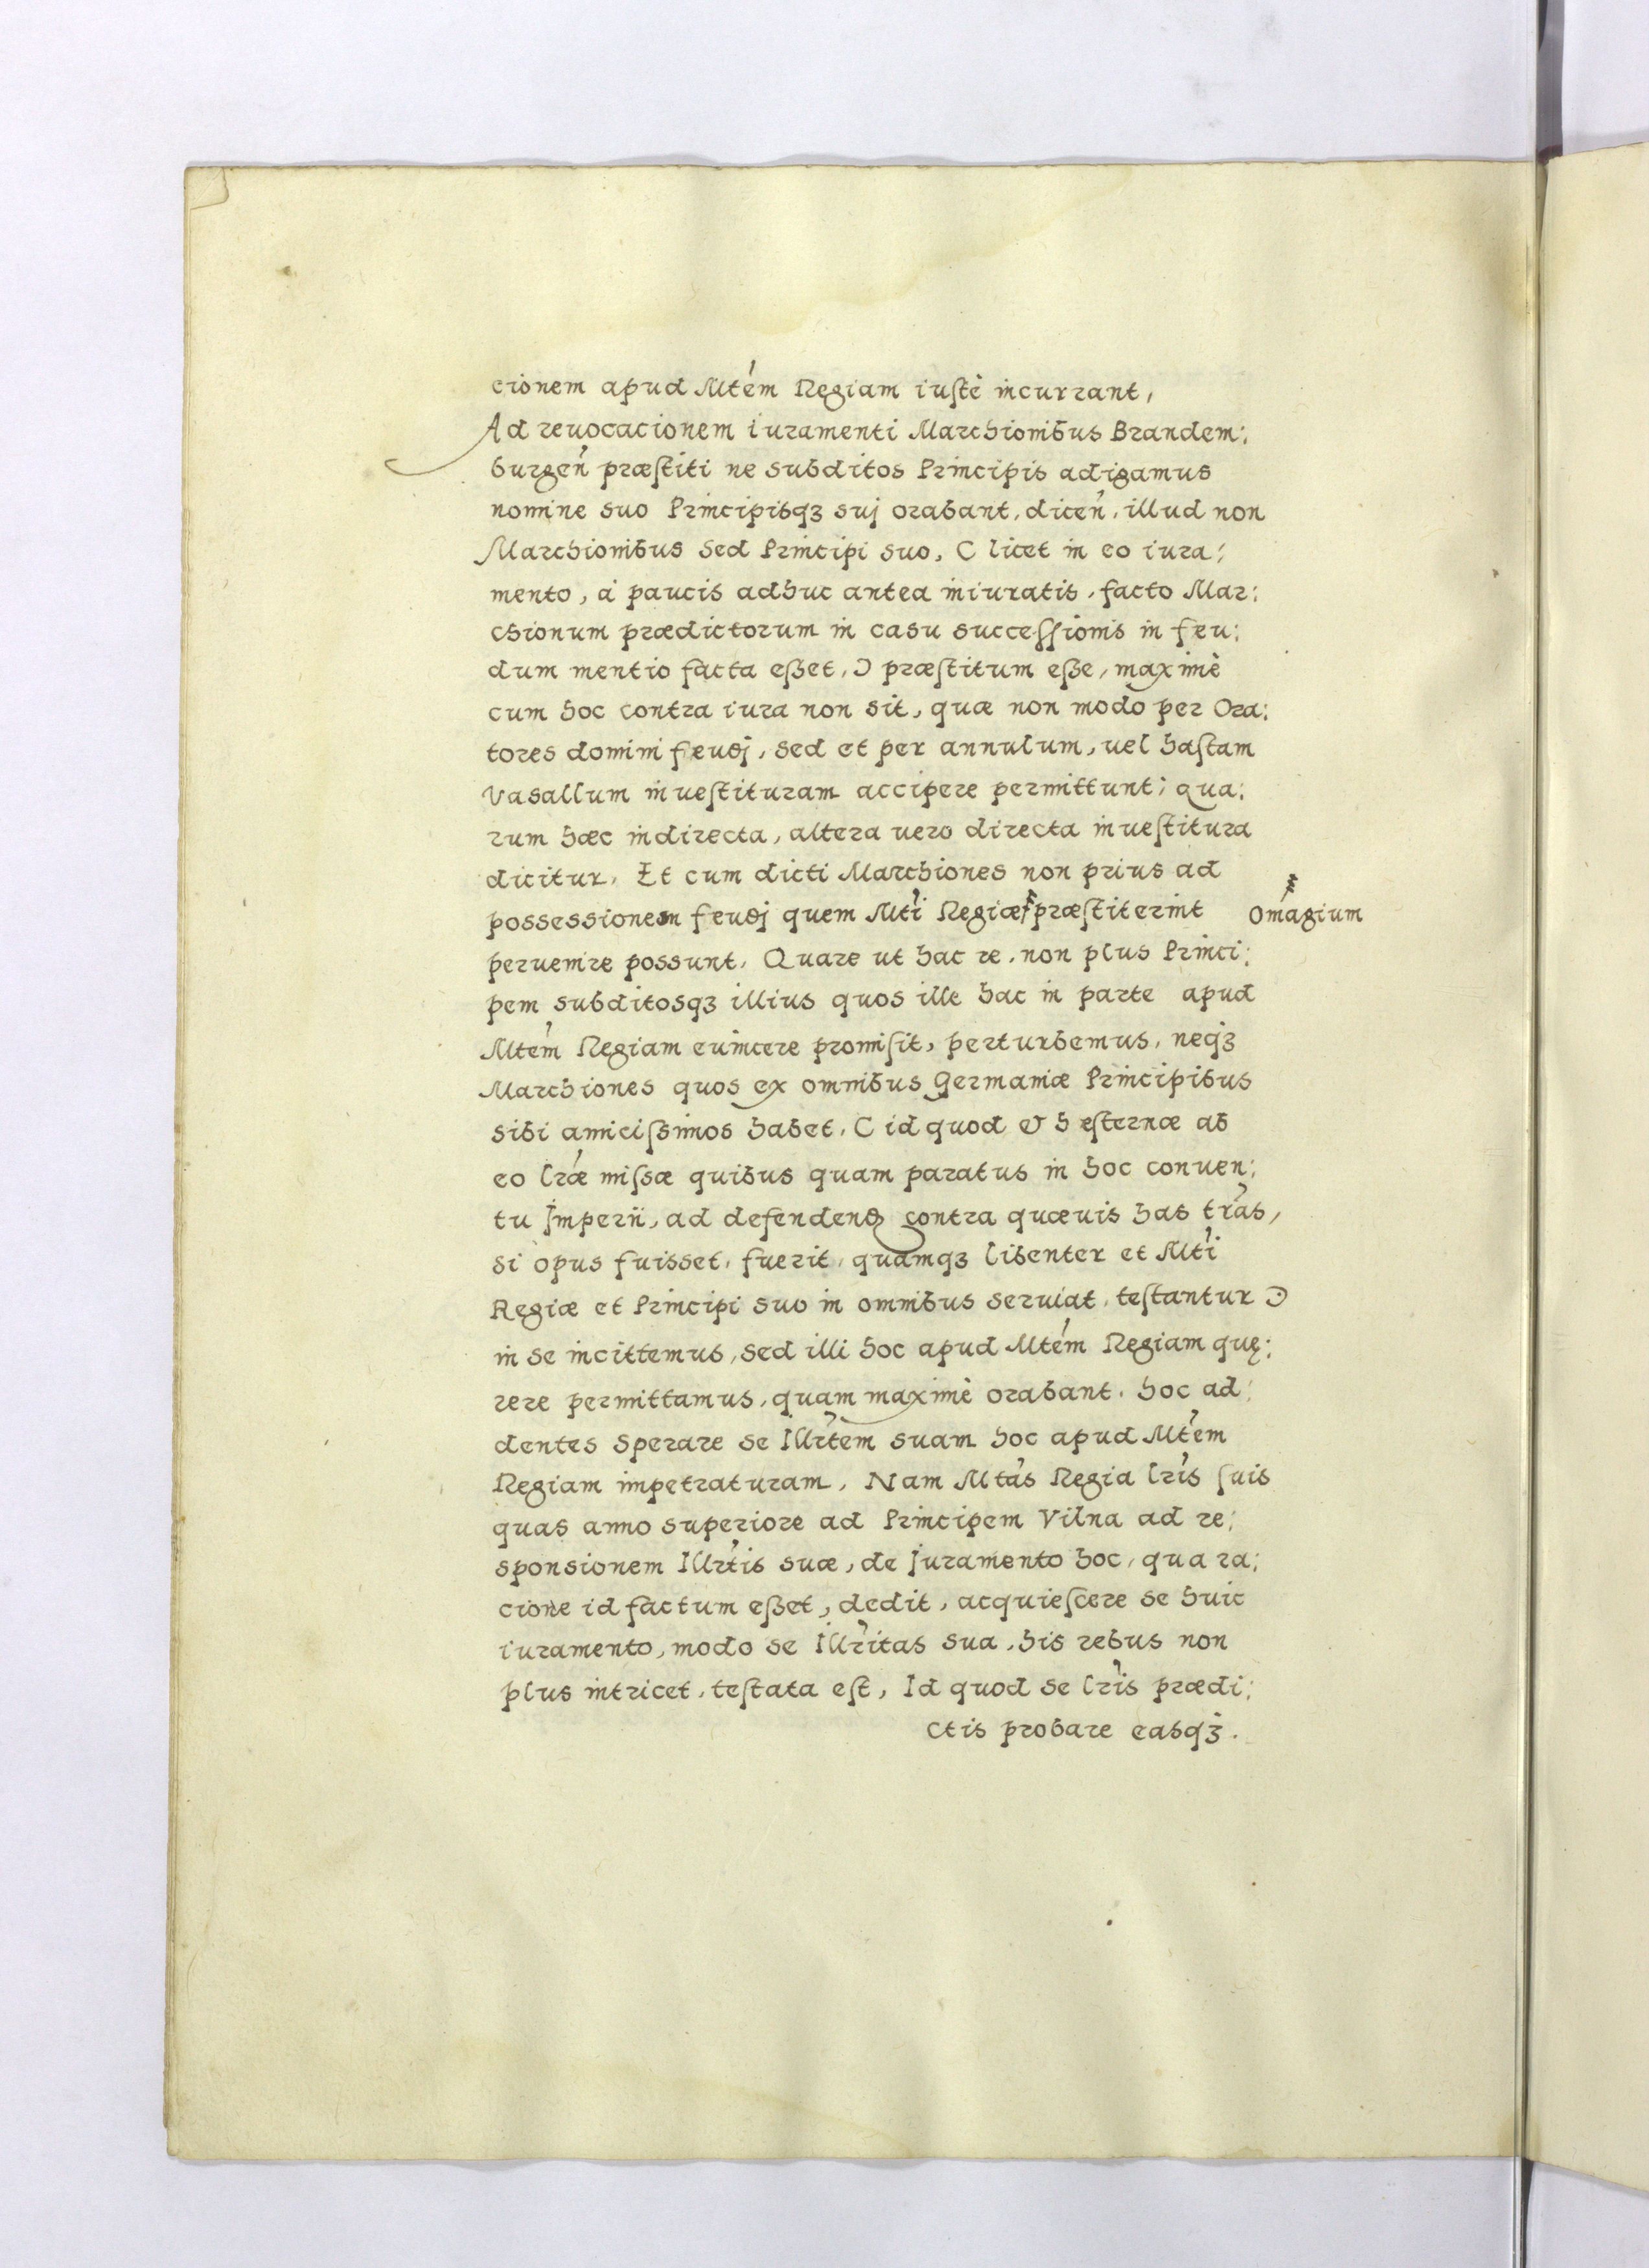 cionem apud Mtém Regiam iustè incurrant,
Ad reuocacionem iuramenti Marchionibus Brandem:
burgeń præstiti ne subditos Principis adigamus
nomine suo Principisqʒ suj orabant, diceń, illud non
Marchionibus Sed Principi suo, C licet in eo iura:
mento, à paucis adhuc antea iniuratis, facto Mar:
chionum prædictorum in casu successionis in feu:
dum mentio facta eßet, Ɔ præstitum eße, maximè
cum hoc contra iura non sit, quæ non modo per Ora:
tores domini feudj, sed et per annulum, uel hastam
Vasallum inuestituram accipere permittunt; qua:
rum hæc indirecta, altera uero directa inuestitura
dicitur. Et cum dicti Marchiones non prius ad
possessionem feudj quem Mtí Regiæ præstiterint Omagium
peruenire possunt. Quare ut hac re, non plus Princi:
pem subditosqʒ illius quos ille hac in parte apud
Mtém Regiam euincere promisit, perturbemus, neqʒ
Marchiones quos ex omnibus Germaniæ Principibus
sibi amicissimos habet, C id quod & hesternæ ab
eo lræ missæ quibus quam paratus in hoc conuen:
tu Imperii, ad defendend contra quæuis has tras,
si opus fuisset, fuerit, quamqʒ libenter et Mtí
Regiæ et Principi suo in omnibus seruiat, testantur Ɔ
in se incittemus, sed illi hoc apud Mtém Regiam quę:
rere permittamus, quam maximè orabant. hoc ad:
dentes Sperare se Illrtém suam hoc apud Mtém
Regiam impetraturam, Nam Mtás Regia lrís suis
quas anno superiore ad Principem Vilna ad re:
sponsionem Illrtís suæ, de Juramento hoc, qua ra:
cione id factum eßet, dedit, acquiescere se huic
iuramento, modo se Illrítas sua, his rebus non
plus intricet, testata est, Id quod se lrís prædi:
ctis probare easqʒ.